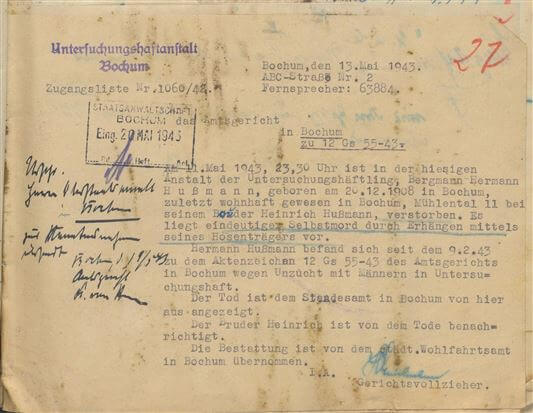 Untersuchungshaftanstalt
Bochum
Bochum, den 13.Mai 1943.
ABC-Straße Nr. 2
Zugangsliste Nr.1060/42.
Fernsprecher: 63884.
27
STAATSANWALTSCHAFT
BOCHUM
Eing. 20 MAI 1943
das Amtsgericht
in Bochum
zu 12 Gs 55-43.
Am 11.Mai 1943, 23,30 Uhr ist in der hiesigen
Anstalt der Untersuchungshäftling, Bergmann Hermann
Hußmann, geboren am 20.12.1908 in Bochum,
zuletzt wohnhaft gewesen in Bochum, Mühlental 11 bei
seinem Bruder Heinrich Hußmann, verstorben. Es
liegt eindeutiger Selbstmord durch Erhängen mittels
seines Hosenträgers vor.
Hermann Hußmann befand sich seit dem 9.2.43
zu dem Aktenzeichen 12 Gs 55-43 des Amtsgerichts
in Bochum wegen Unzucht mit Männern in Untersu=
chungshaft.
Der Tod ist dem Standesamt in Bochum von hier
aus angezeigt.
Der Bruder Heinrich ist von dem Tode benach=
richtigt.
Die Bestattung ist von dem Städt.Wohlfahrtsamt
in Bochum übernommen.
I.A.
Gerichtsvollzieher.
Urschr.
Herrn Oberstaatsanwalt
Bochum
zur Kenntnisnahme
Amtsgericht